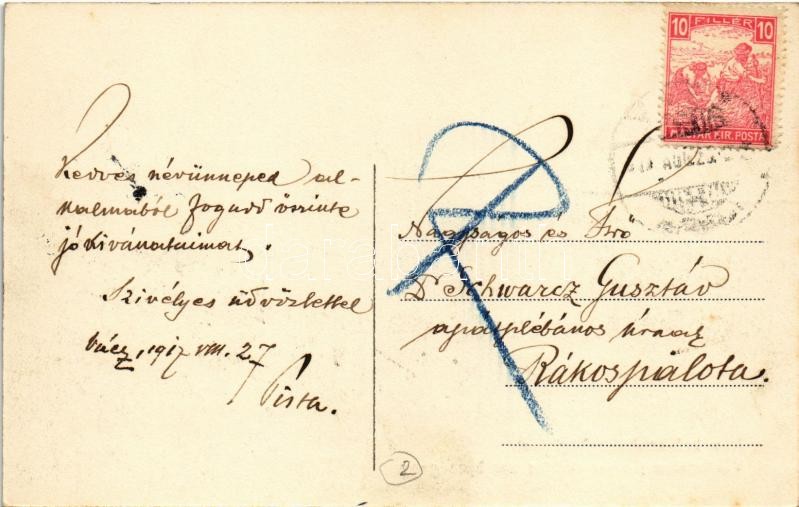 10 FILLÉR 10
MAGYAR KIR. POSTA
Kedves névünneped al-
kalmából fogadd őszinte
jókívánataimat.
Szivélyes üdvözlettel
Vácz, 1917 VIII. 27
Pista.
Nagyságos és
Dr Schwarcz Gusztáv
apátplébános úrnak
Rákospalota.
2